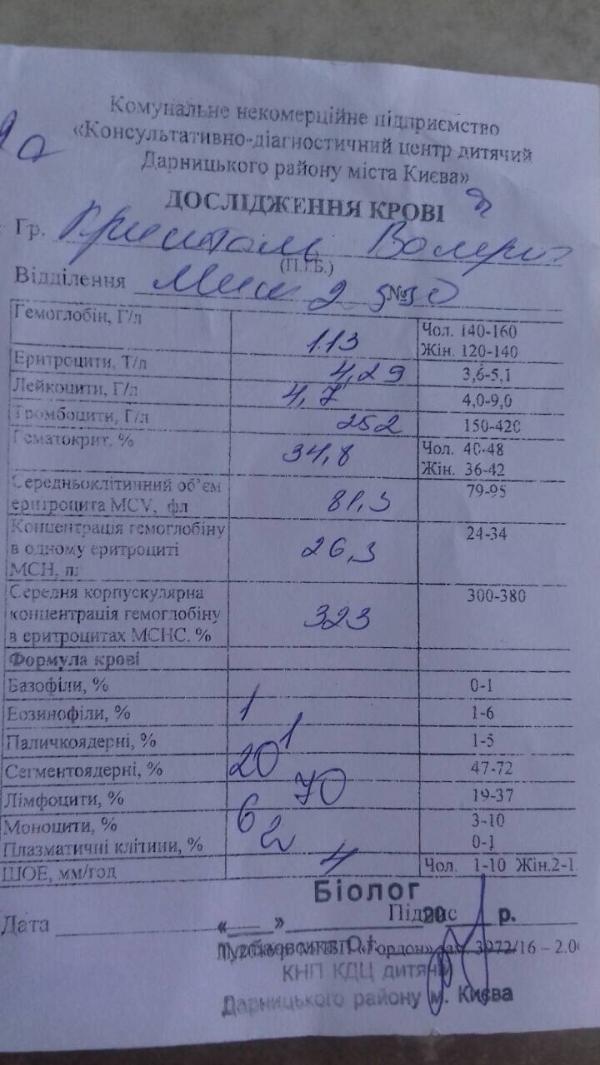 Комунальне некомерційне підприємство
«Консультативно-діагностичний центр дитячий
Дарницького району міста Києва»
ДОСЛІДЖЕННЯ КРОВІ
Гр.
(П.І.Б.)
Відділення
Гемоглобін, Г/л 113 Чол. 140-160
Жін. 120-140
Еритроцити, Т/л 4,29 3,6-5,1
Лейкоцити, Г/л 4,7 4,0-9,0
Тромбоцити, Г/л 252 150-420
Гематокрит, % 34,8 Чол. 40-48
Жін. 36-42
Середньоклітинний об'єм
еритроцита MCV, фл 81,3 79-95
Концентрація гемоглобіну
в одному еритроциті
МСН, пг 26,3 24-34
Середня корпускулярна
концентрація гемоглобіну
в еритроцитах МСНС, % 323 300-380
Формула крові
Базофіли, % 0-1
Еозинофіли, % 1 1-6
Паличкоядерні, % 1 1-5
Сегментоядерні, % 20 47-72
Лімфоцити, % 70 19-37
Моноцити, % 6 3-10
Плазматичні клітини, % 2 0-1
ШОЕ, мм/год 4 Чол. 1-10 Жін.2-1
Біолог
Дата « » Підпис 20 р.
«Гордон» 3972/16 – 2.0
КНП КДЦ дитячий
Дарницького району м. Києва